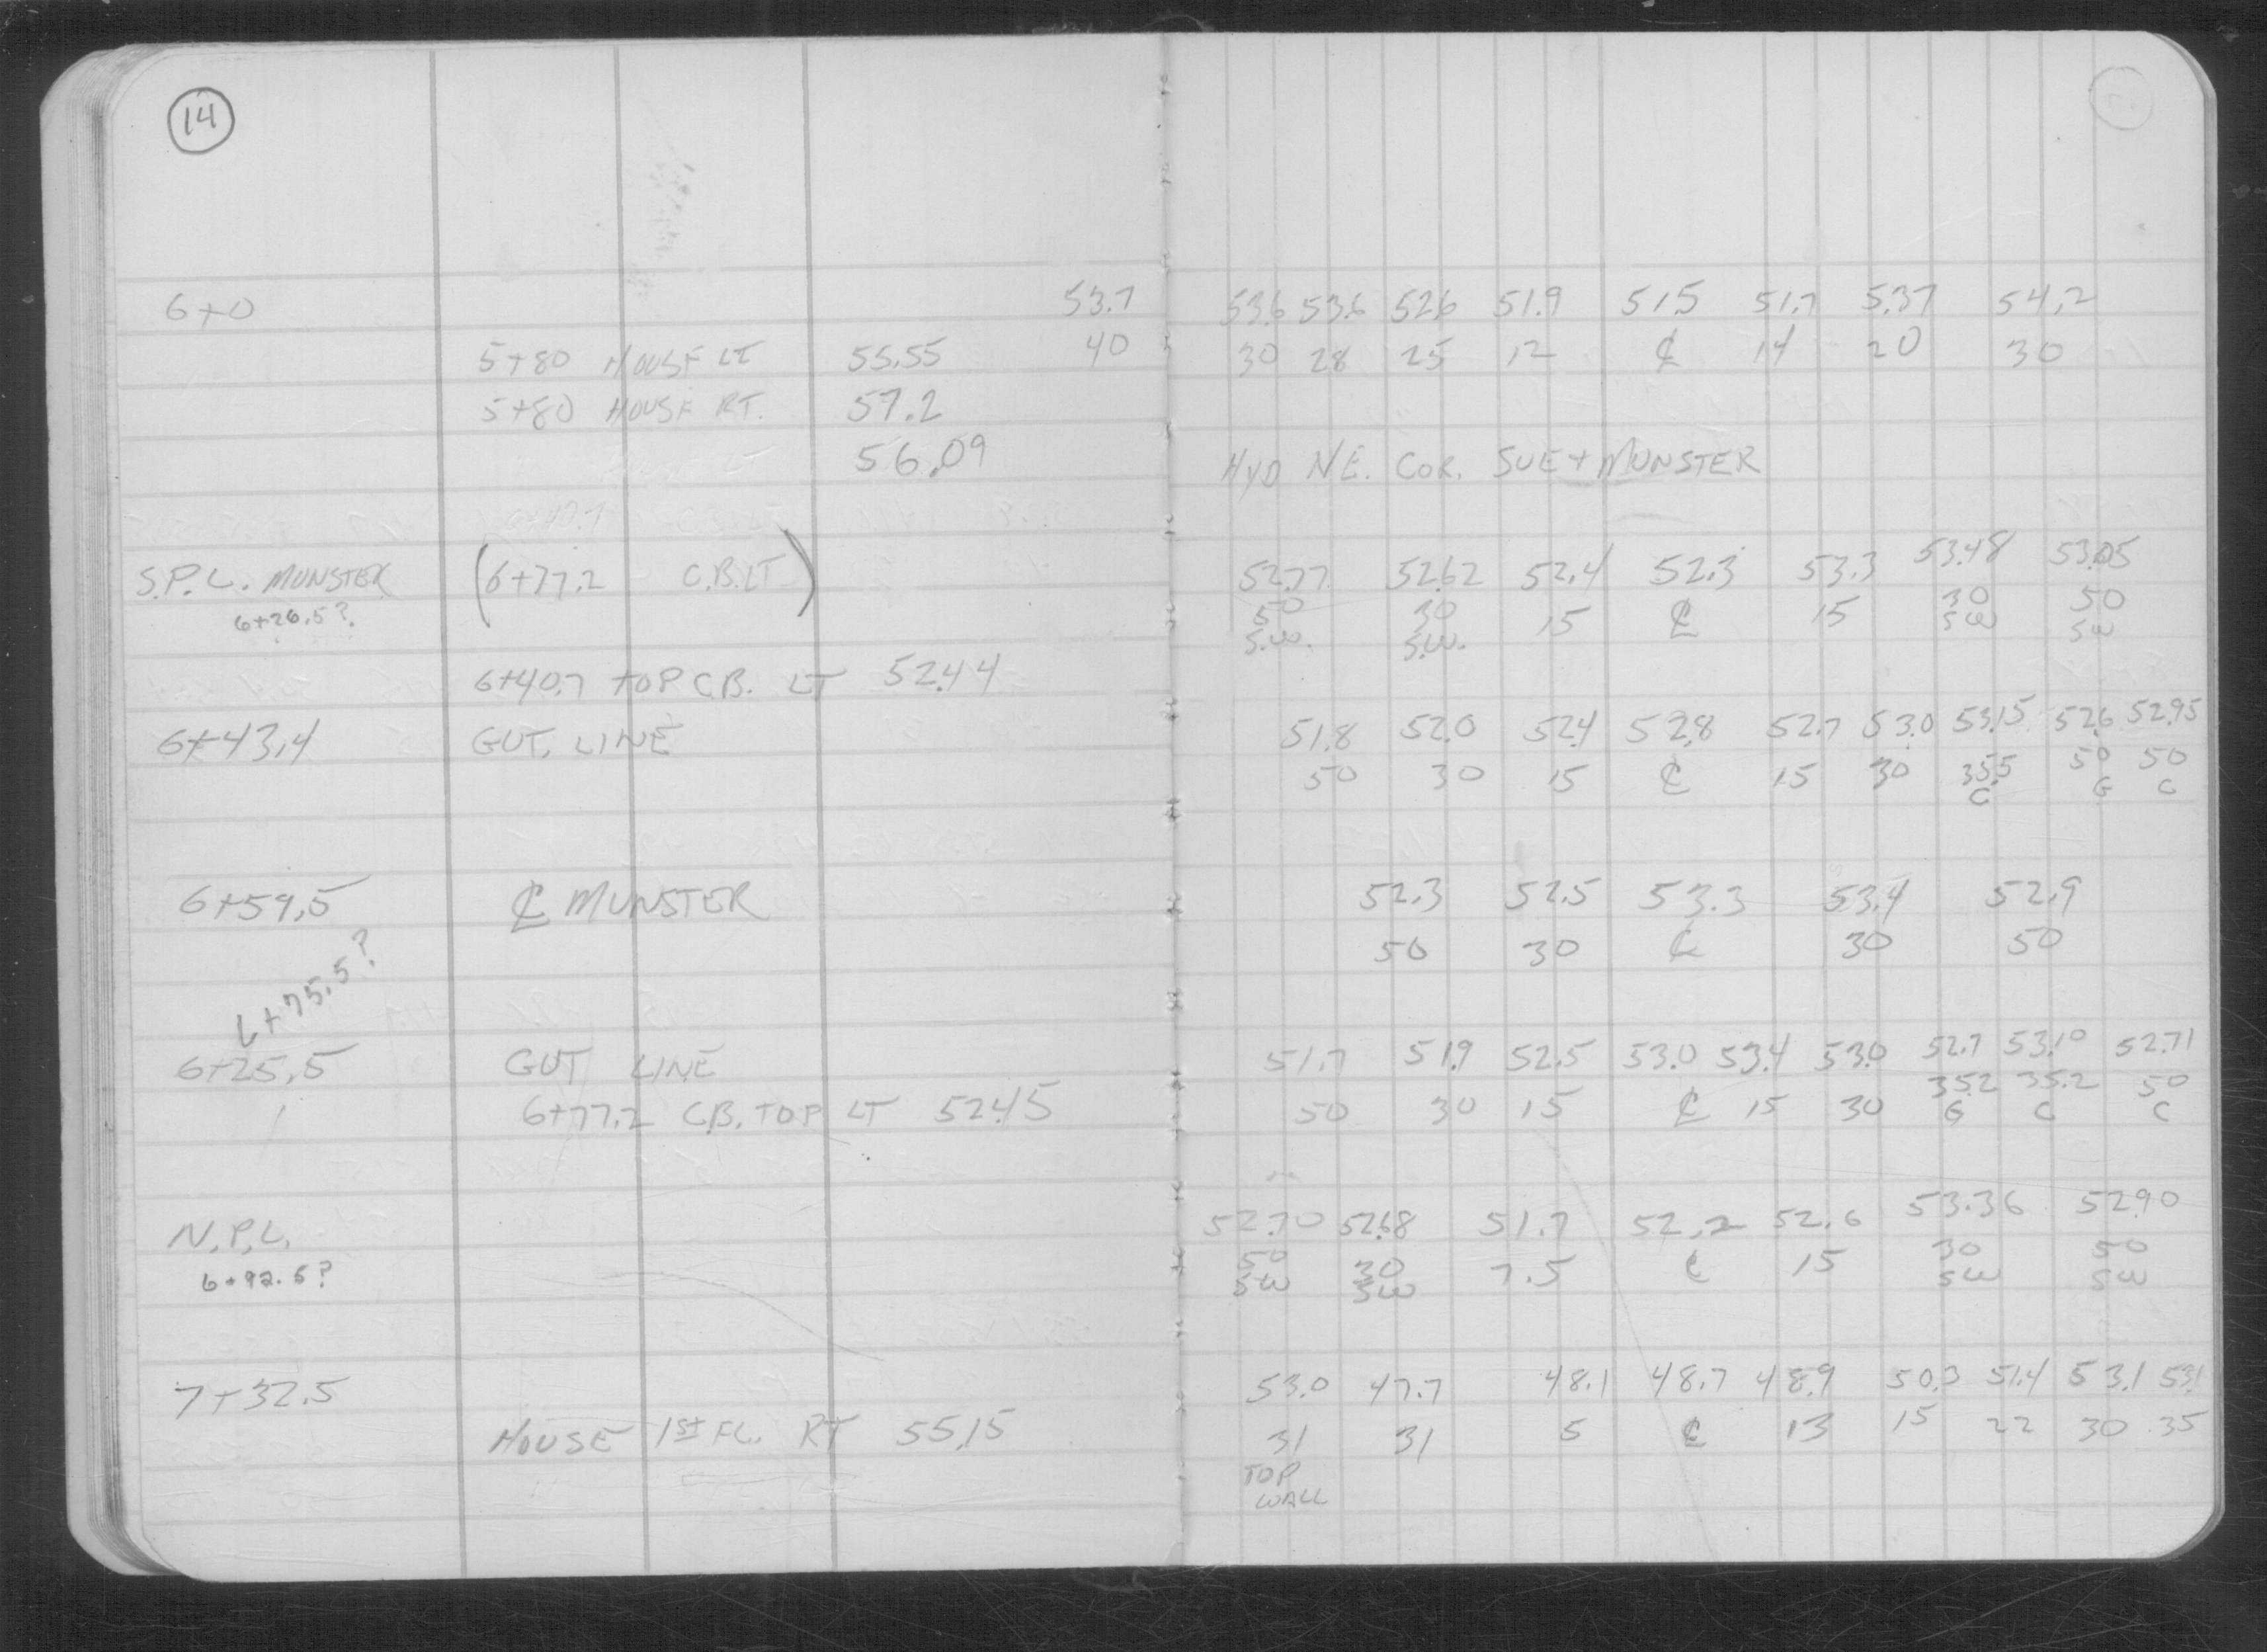 14
6+0 53.7 53.6 53.6 52.6 51.9 51.5 51.7 53.7 54.2
5+80 HOUSE LT 55.55 40 30 28 25 12 ℄ 14 20 30
5+80 HOUSE RT. 57.2
56.09 HYD NE. COR. SUE + MUNSTER
S.P.L. MUNSTER (6+77.2 C.B. LT) 52.77 52.62 52.4 52.3 53.3 53.48 53.05
6+26.5? 50 30 15 ℄ 15 30 50
S.W. S.W. SW SW
6+40.7 TOP C.B. LT 52.44
6+43.4 GUT. LINE 51.8 52.0 52.4 52.8 52.7 53.0 53.15 52.6 52.95
50 30 15 ℄ 15 30 35.5 50 50
C G C
6+59.5 ℄ MUNSTER 52.3 52.5 53.3 53.4 52.9
50 30 ℄ 30 50
6+75.5?
6+25.5 GUT LINE 51.7 51.9 52.5 53.0 53.4 53.0 52.7 53.10 52.71
6+77.2 C.B. TOP LT 52.45 50 30 15 ℄ 15 30 35.2 35.2 50
G C C
N.P.L. 52.70 52.68 51.7 52.2 52.6 53.36 52.90
6+92.5? 50 30 7.5 ℄ 15 30 50
SW SW SW SW
7+32.5 53.0 47.7 48.1 48.7 48.9 50.3 51.4 53.1 53.1
HOUSE 1st FL. RT 55.15 31 31 5 ℄ 13 15 22 30 35
TOP
WALL